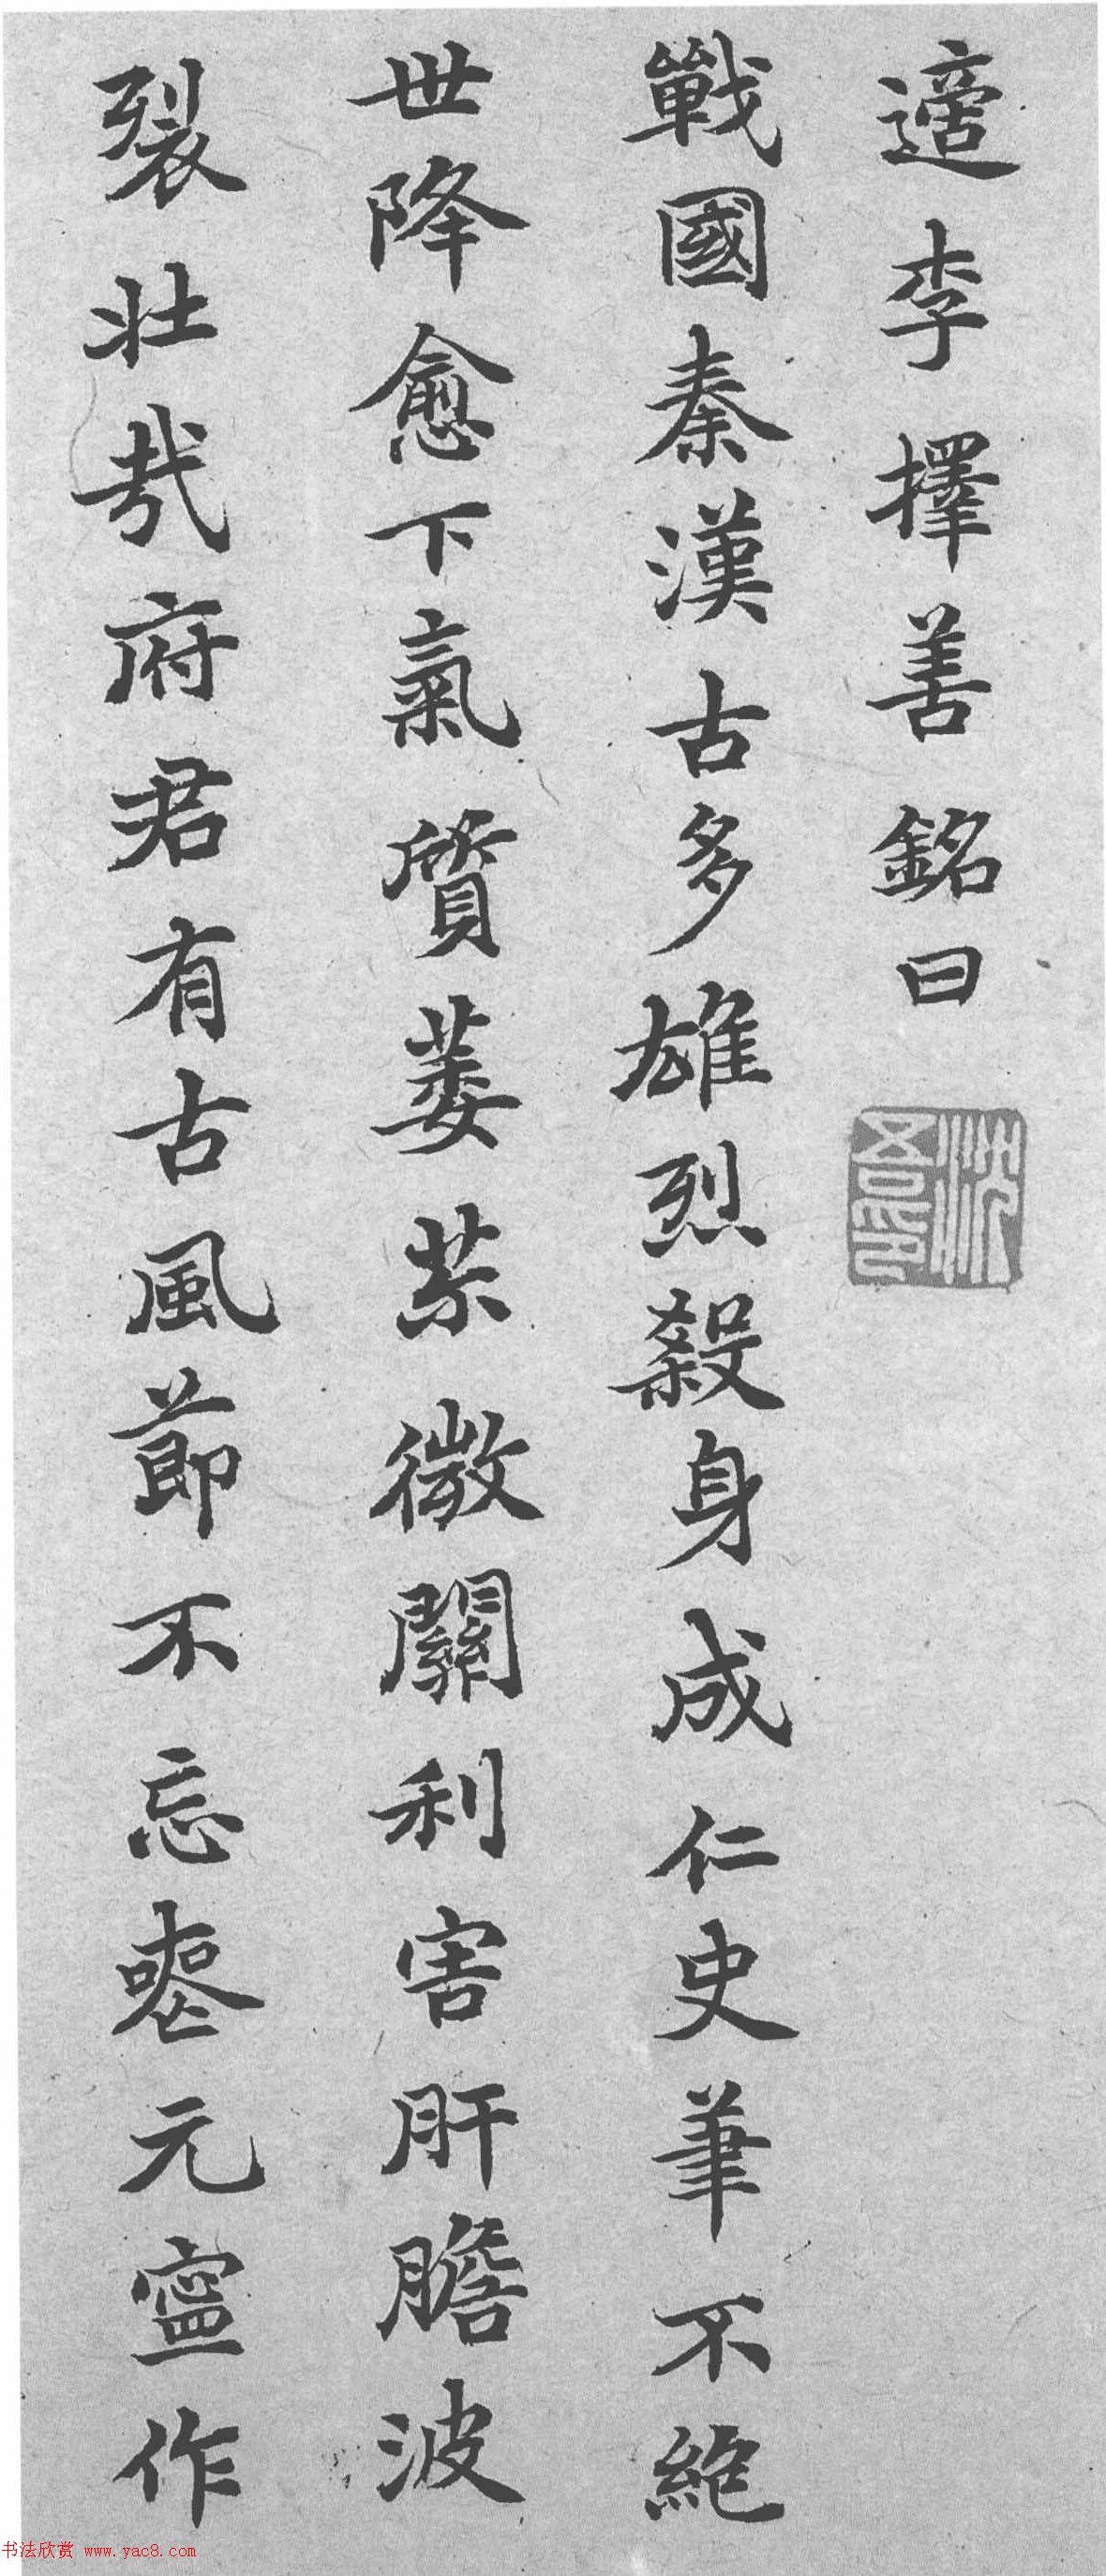 適李擇善銘曰
戰國秦漢古多雄烈殺身成仁史筆不絶
世降愈下氣質萎苶微關利害肝膽波
裂壯哉府君有古風節不忘喪元寧作
书法欣赏 www.yac8.com